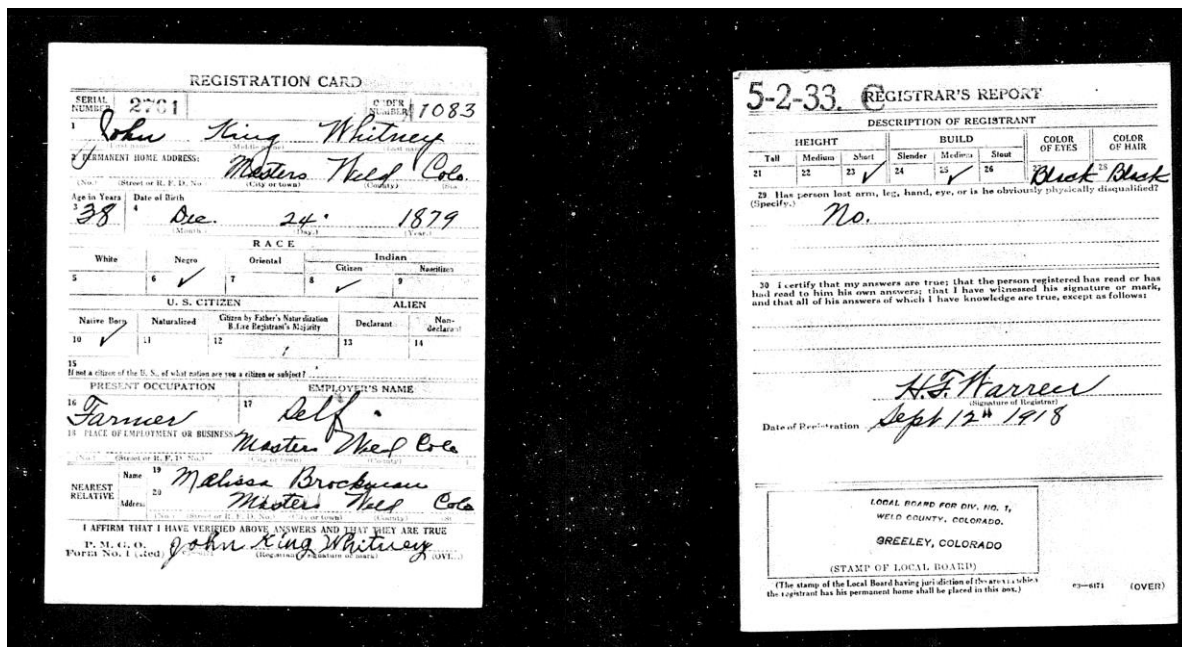 REGISTRATION CARD
SERIAL NUMBER 2761 ORDER NUMBER 1083
1 John King Whitney
2 PERMANENT HOME ADDRESS: Masters Weld Colo.
(No.) (Street or R. F. D. No.) (City or town) (County)
Age in Years Date of Birth
3 38 4 Dec. 24. 1879
(Month) (Day.) (Year.)
RACE
White Negro Oriental Indian
Citizen Noncitizen
5 6 ✓ 7 8 ✓ 9
U. S. CITIZEN ALIEN
Native Born Naturalized Citizen by Father's Naturalization Before Registrant's Majority Declarant Non-declarant
10 ✓ 11 12 13 14
15
If not a citizen of the U. S., of what nation are you a citizen or subject?
PRESENT OCCUPATION EMPLOYER'S NAME
16 Farmer 17 Self.
18 PLACE OF EMPLOYMENT OR BUSINESS: Masters Weld Colo
(No.) (Street or R. F. D. No.) (City or town) (County)
NEAREST RELATIVE Name 19 Malissa Brockman
Address 20 Masters Weld Colo
(No.) (Street or R. F. D. No.) (City or town) (County)
I AFFIRM THAT I HAVE VERIFIED ABOVE ANSWERS AND THAT THEY ARE TRUE
P. M. G. O.
Form No. 1 (Red) John King Whitney
(Registrant's signature or mark) (OVER)
5-2-33. C REGISTRAR'S REPORT
DESCRIPTION OF REGISTRANT
HEIGHT BUILD COLOR OF EYES COLOR OF HAIR
Tall Medium Short Slender Medium Stout
21 22 23 ✓ 24 25 ✓ 26 27 Black 28 Black
29 Has person lost arm, leg, hand, eye, or is he obviously physically disqualified?
(Specify.) No.
30 I certify that my answers are true; that the person registered has read or has
had read to him his own answers; that I have witnessed his signature or mark,
and that all of his answers of which I have knowledge are true, except as follows:
H.F. Warren
(Signature of Registrar)
Date of Registration Sept 12th 1918
LOCAL BOARD FOR DIV. NO. 1,
WELD COUNTY, COLORADO.
GREELEY, COLORADO
(STAMP OF LOCAL BOARD)
(The stamp of the Local Board having jurisdiction of the area in which
the registrant has his permanent home shall be placed in this box.)
03—6171 (OVER)